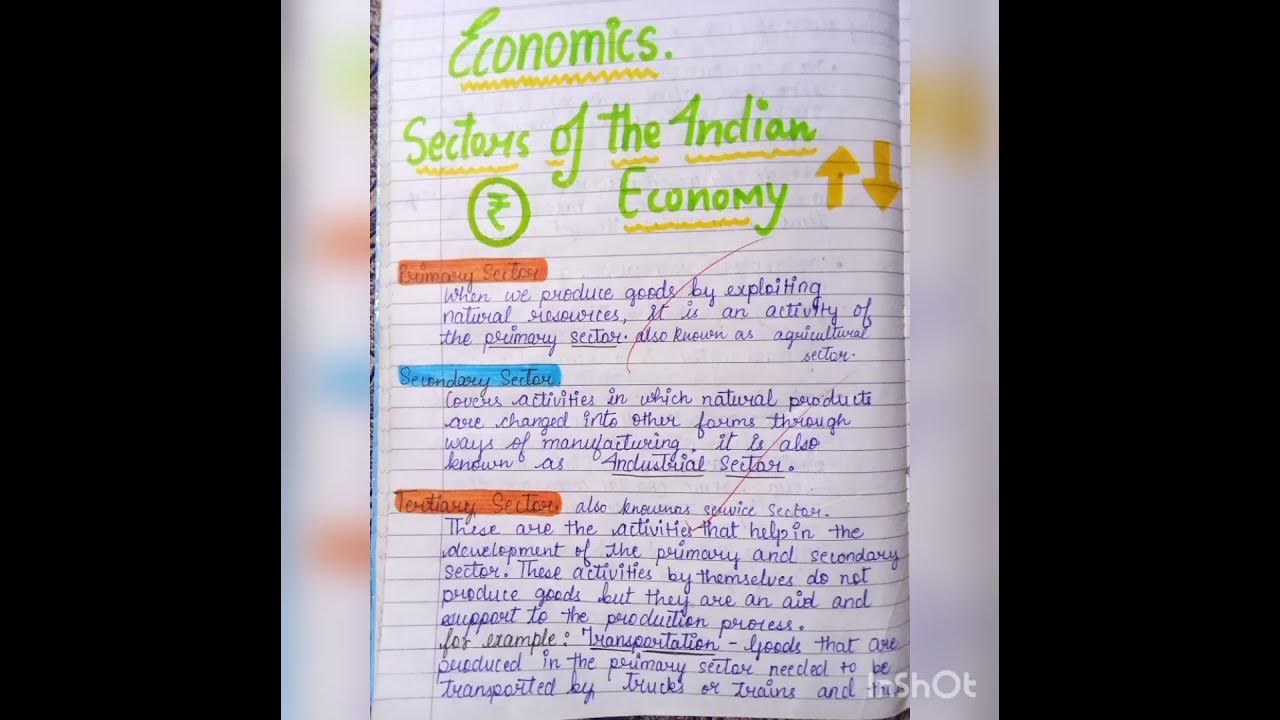 Economics.
Sectors of the Indian
₹ Economy
Primary Sector
When we produce goods by exploiting
natural resources, it is an activity of
the primary sector. also known as agricultural
sector.
Secondary Sector.
Covers activities in which natural products
are changed into other forms through
ways of manufacturing. it is also
known as Industrial Sector.
Tertiary Sector. also known as service sector.
These are the activities that help in the
development of the primary and secondary
sector. These activities by themselves do not
produce goods but they are an aid and
support to the production process.
for example: Transportation - Goods that are
produced in the primary sector needed to be
transported by trucks or trains and
InShOt